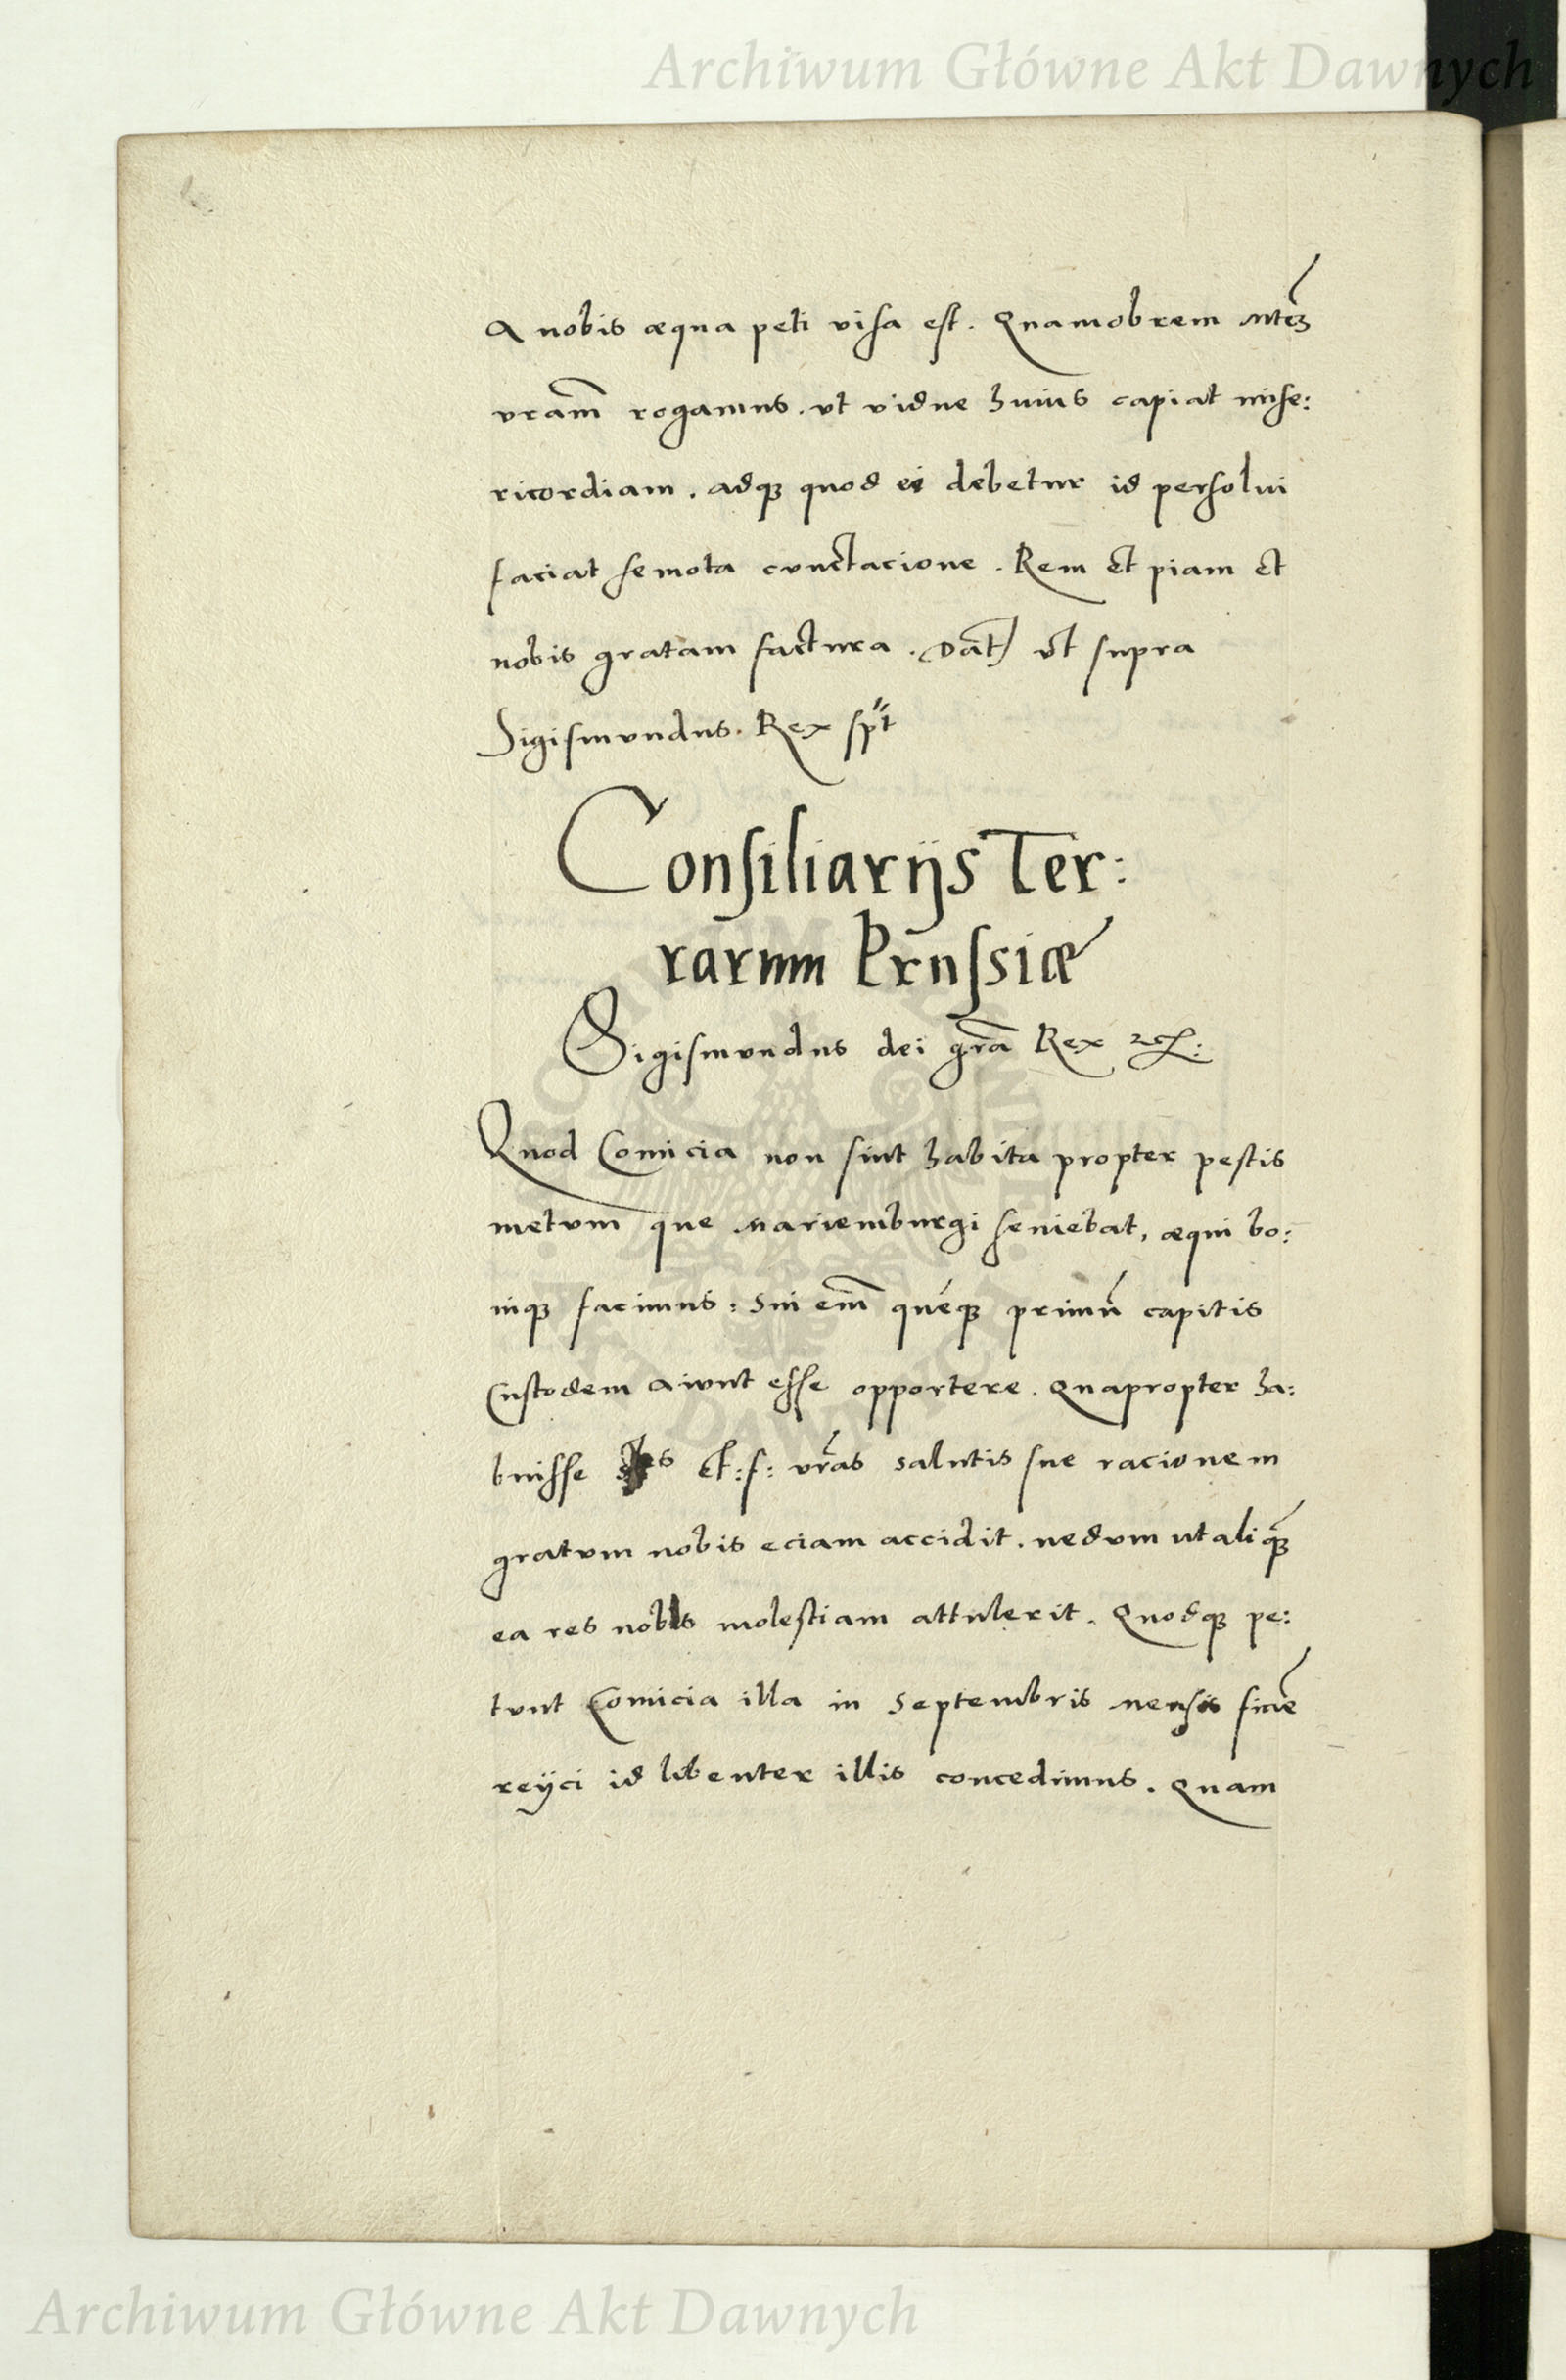 Archiwum Główne Akt Dawnych
A nobis æqua peti visa est. Quamobrem Mtem
vram rogamus. vt vidue huius capiat mise:
ricordiam. adq3 quod ei debetur id persolui
faciat semota cunctacione. Rem et piam et
nobis gratam factura. Dat vt supra
Sigismundus. Rex spt
Consiliarijs Ter:
rarum Prussiæ
Sigismundus dei gra Rex etc:
Quod Comicia non sint habita propter pestis
metum que Mariemburgi seuiebat, æqui bo:
niq3 facimus: Sui em queq3 primu capitis
Custodem aiunt esse opportere. Quapropter ha:
buisse et: f: vras salutis sue racionem
gratum nobis eciam accidit. nedum ut aliqua
ea res nobis molestiam attulerit. Quodq3 pe:
tunt Comicia illa in Septembris mensis fine
reijci id libenter illis concedimus. Quam
Archiwum Główne Akt Dawnych